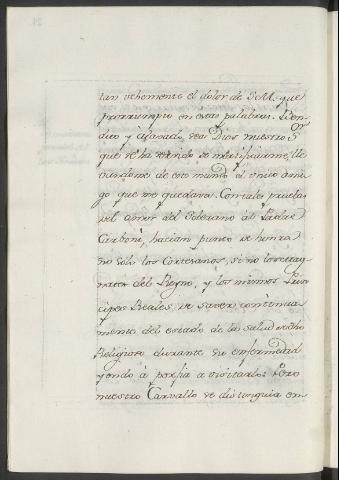 tan vehemente el dolor de S.M. que
prorrumpio en estas palabras. Ben-
dito y alavado sea Dios nuestro Sor
que se ha servido de mortificarme, lle-
vandome de este mundo el unico ami-
go que me quedava. Con tales pruebas
del amor del Soberano al Padre
Carboni, hacian punto de honra
no solo los Cortesanos, si no los estra-
del Reyno, y los mismos Prin-
cipes Reales, de saver continua-
mente del estado de la salud
Religioso durante su enfermedad
yendo à porfia a visitarlo: Pero
nuestro Carvallo se distinguia en-